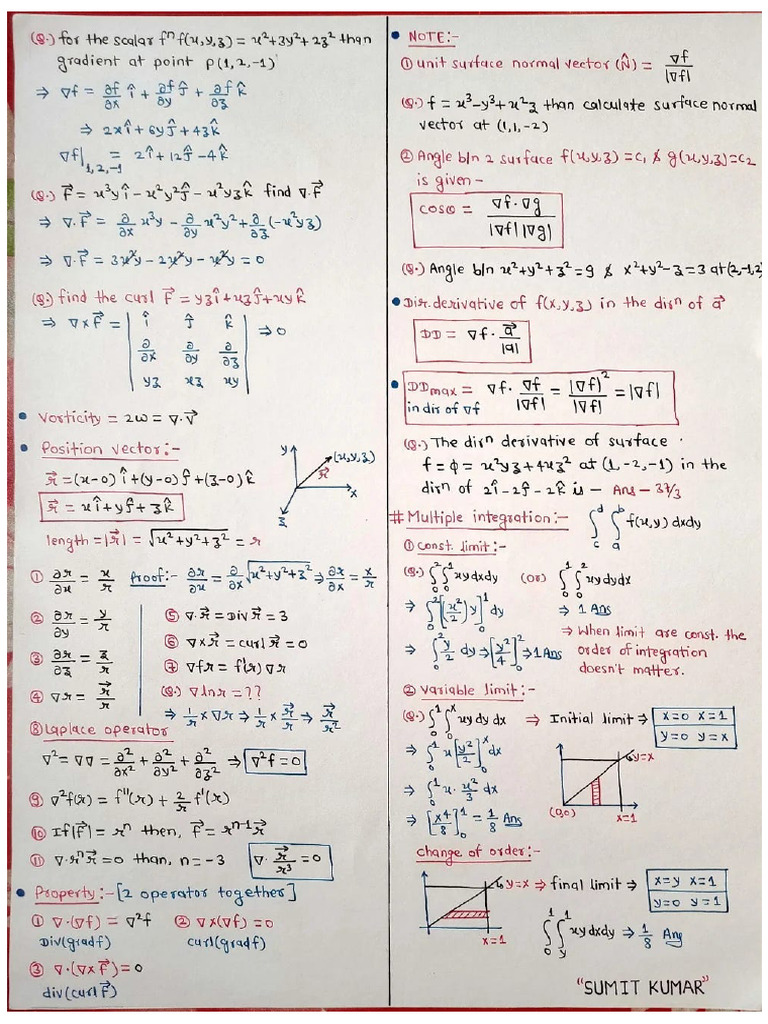 (Q.) for the scalar fⁿ f(x,y,z) = x²+3y²+2z² than
gradient at point P(1,2,-1)
⇒ ∇f = ∂f/∂x î + ∂f/∂y ĵ + ∂f/∂z k̂
⇒ 2xî+6yĵ+4zk̂
∇f|₁,₂,₋₁ = 2î+12ĵ-4k̂
(Q.) F⃗ = x³yî - x²y²ĵ - x²yzk̂ find ∇·F⃗
⇒ ∇·F⃗ = ∂/∂x x³y - ∂/∂y x²y² + ∂/∂z (-x²yz)
⇒ ∇·F⃗ = 3x²y - 2x²y - x²y = 0
(Q.) find the curl F⃗ = yzî+xzĵ+xyk̂
⇒ ∇×F⃗ = | î ĵ k̂ | ⇒ 0
∂/∂x ∂/∂y ∂/∂z
yz xz xy
• Vorticity = 2ω = ∇·V⃗
• Position vector:-
r⃗ = (x-0)î+(y-0)ĵ+(z-0)k̂
r⃗ = xî+yĵ+zk̂
y (x,y,z)
r⃗
x
z
length = |r⃗| = √x²+y²+z² = r
① ∂r/∂x = x/r Proof:- ∂r/∂x = ∂/∂x √x²+y²+z² ⇒ ∂r/∂x = x/r
② ∂r/∂y = y/r
③ ∂r/∂z = z/r
④ ∇r = r⃗/r
⑤ ∇·r⃗ = Div r⃗ = 3
⑥ ∇×r⃗ = curl r⃗ = 0
⑦ ∇fr = f'(r) ∇r
(Q.) ∇lnr = ??
⇒ 1/r × ∇r ⇒ 1/r × r⃗/r ⇒ r⃗/r²
⑧ Laplace operator
∇² = ∇∇ = ∂²/∂x² + ∂²/∂y² + ∂²/∂z² ⇒ ∇²f = 0
⑨ ∇²f(r) = f''(r) + 2/r f'(r)
⑩ If |F⃗| = rⁿ then, F⃗ = rⁿ⁻¹r⃗
⑪ ∇·rⁿr⃗ = 0 than, n = -3 ∇·r⃗/r³ = 0
• Property:- [2 operator together]
① ∇·(∇f) = ∇²f ② ∇×(∇f) = 0
Div(gradf) curl(gradf)
③ ∇·(∇×F⃗) = 0
div(curl F⃗)
• NOTE:-
① unit surface normal vector (N̂) = ∇f/|∇f|
(Q.) f = x³-y³+x²z than calculate surface normal
vector at (1,1,-2)
② Angle b/n 2 surface f(x,y,z)=c₁ & g(x,y,z)=c₂
is given -
cosθ = ∇f·∇g/|∇f| |∇g|
(Q.) Angle b/n x²+y²+z²=9 & x²+y²-z=3 at (2,-1,2)
• Dir. derivative of f(x,y,z) in the dirⁿ of a⃗
DD = ∇f · a⃗/|a|
• DDmax = ∇f · ∇f/|∇f| = |∇f|²/|∇f| = |∇f|
in dir of ∇f
(Q.) The dirⁿ derivative of surface
f = φ = x²yz+4xz² at (1,-2,-1) in the
dirⁿ of 2î-2ĵ-2k̂ is - Ans - 37/3
# Multiple integration:- ∫_c^d ∫_a^b f(x,y) dxdy
① Const. limit:-
(Q.) ∫₀² ∫₀¹ xydxdy (or) ∫₀¹ ∫₀² xydydx
⇒ ∫₀² [(x²/2) y]₀¹ dy ⇒ 1 Ans
⇒ ∫₀² y/2 dy ⇒ [y²/4]₀² ⇒ 1 Ans
⇒ When limit are const. the
order of integration
doesn't matter.
② Variable limit:-
(Q.) ∫₀¹ ∫₀ˣ xydydx ⇒ Initial limit ⇒ x=0 x=1
y=0 y=x
⇒ ∫₀¹ x[y²/2]₀ˣ dx
⇒ ∫₀¹ x·x²/2 dx
⇒ [x4/8]₀¹ = 1/8 Ans
y=x
(0,0) x=1
Change of order:-
y=x ⇒ final limit ⇒ x=y x=1
y=0 y=1
x=1
∫₀¹ ∫_y¹ xydxdy ⇒ 1/8 Ans
"SUMIT KUMAR"